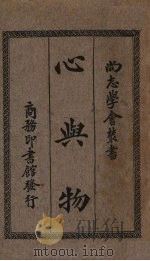 尚志學會叢書
心與物
商務印書館發行
mtoou.info